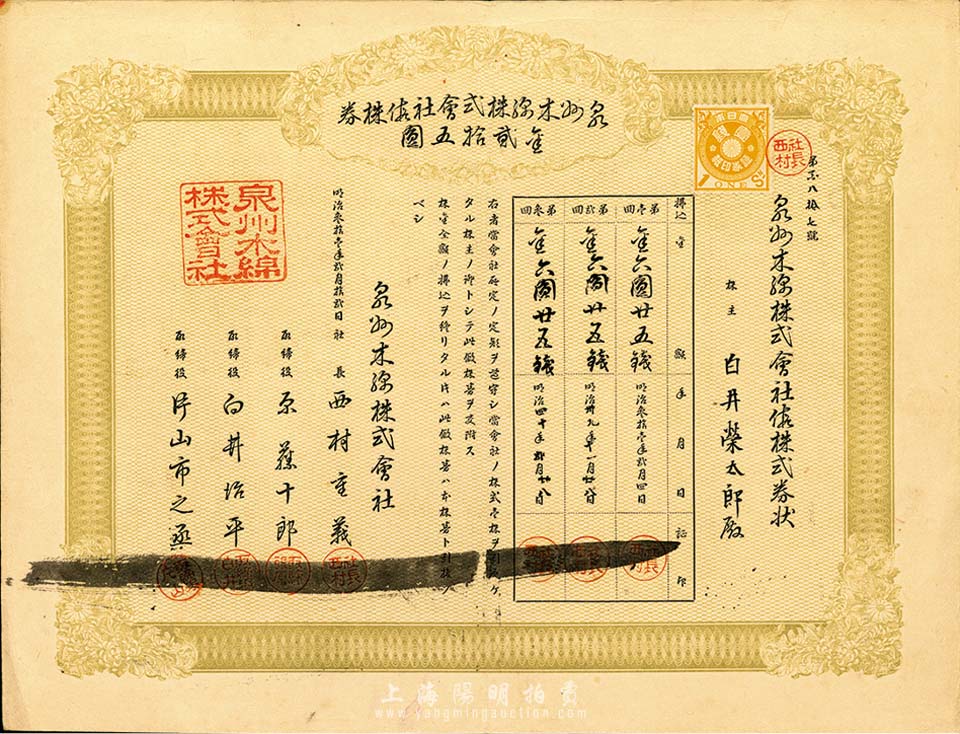 泉州木綿株式會社仮株券
金貳拾五圓
大日本帝國
1 ONE
社長西村
第百八拾七號
泉州木綿株式會社仮株式券状
株主 白井榮太郎殿
拂込金額 年月日 証印
第壱回 金六圓廿五錢 明治参拾壱年貳月四日
第弐回 金六圓廿五錢 明治卅九年十一月廿八日
第参回 金六圓廿五錢 明治四十年弐月廿八日
右者當會社所定ノ定款ヲ遵守シ當會社ノ株式壱株ヲ
タル株主ノ證トシテ此仮株券ヲ交附ス
株金全額ノ拂込ヲ終リタル時ハ此仮株券ハ本株券ト引換
ベシ
泉州木綿株式會社
明治参拾壱年貳月拾弐日 社長 西村重義
取締役 原藤十郎
取締役 白井治平
取締役 片山市之
泉州木綿
株式會社
上海陽明拍賣
www.yangmingauction.com